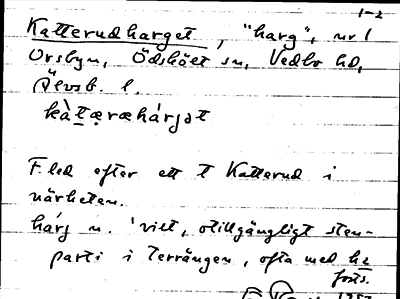 1-2
Katterudharget, "harg", nr 1
Orsbyn, Ödskölt sn, Vedbo hd,
Älvsb. l.
kàtæræhárjət
F. led efter ett t Katterud i
närheten.
hárj n. 'vilt, otillgängligt sten-
parti i terrängen, ofta med he
forts.
1957